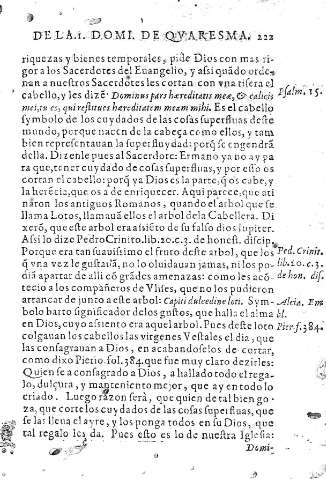 DE LA .1. DOMI. DE QVARESMA. 222
riquezas y bienes temporales, pide Dios con mas ri-
gor a los Sacerdotes del Euangelio, y assi quãdo orde-
nan a nuestros Sacerdotes les cortan con vna tisera el
cabello, y les dizẽ Dominus pars hæreditatis meæ, & calicis
Psalm. 15.
mei, tu es, qui restitues hæreditatem meam mihi. Es el cabello
symbolo de los cuydados de las cosas superfluas deste
mundo, porque nacen de la cabeça como ellos, y tam
bien representauan la superfluydad: porq̃ se engendrã
della. Dizenle pues al Sacerdote: Ermano ya no ay pa
ra que, tener cuydado de cosas superfluas, y por esso os
cortan el cabello: porq̃ ya Dios es la parte, q̃ os cabe, y
la herẽcia, que os a de enriquecer. Aqui parece, que ati
náron los antiguos Romanos, quando el arbol que se
llama Lotos, llamauã ellos el arbol de la Cabellera. Di
xerõ, que este arbol era assiẽto de su falso dios Iupiter.
Assi lo dize Pedro Crinito, lib. 20. c. 3. de honest. discip.
Porque era tan suauissimo el fruto deste arbol, que los
Ped. Crinit.
q̃ vna vez le gustauã, no lo oluidauan jamas, ni los po-
lib. 20. c. 3.
diã apartar de alli cõ grãdes amenazas: como les acõ-
de hon. dis.
tecio a los compañeros de Vlises, que no los pudieron
arrancar de junto a este arbol: Capti dulcedine loti. Sym-
Alcia. Em
bolo harto significador de los gustos, que halla el alma
bl.
en Dios, cuyo assiento era aquel arbol. Pues deste loto
Pier. f. 384.
colgauan los cabellos las virgenes Vestales el dia, que
las consagrauan a Dios, en acabandoselos de cortar,
como dixo Pierio fol. 384. que fue muy claro dezirles:
Quien se a consagrado a Dios, a hallado todo el rega-
lo, dulçura, y mantenimiento mejor, que ay en todo lo
criado. Luego razon serà, que quien de tal bien go-
za, que corte los cuydados de las cosas superfluas, que
se las lleua el ayre, y los ponga todos en su Dios, que
tal regalo les da. Pues esto es lo de nuestra Iglesia:
Domi-